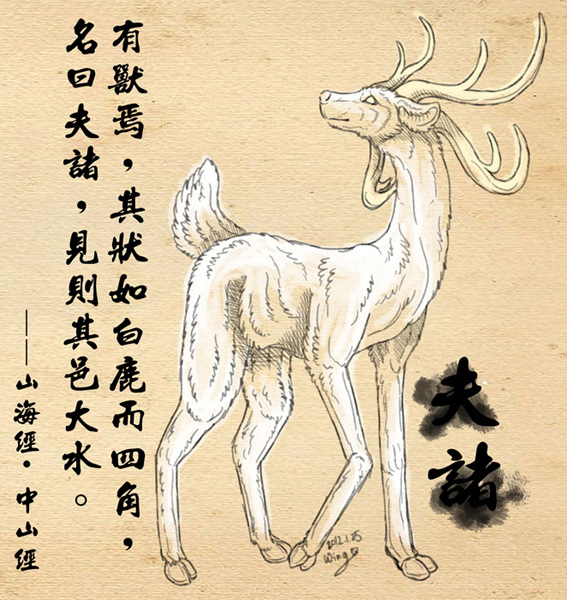 有獸焉，其狀如白鹿而四角，
名曰夫諸，見則其邑大水。
——山海經·中山經
夫諸
2012.1.25
Wing